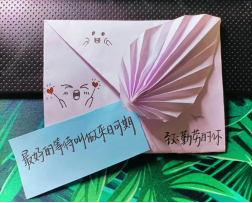 最好的等待叫做来日可期
致:勤劳的你